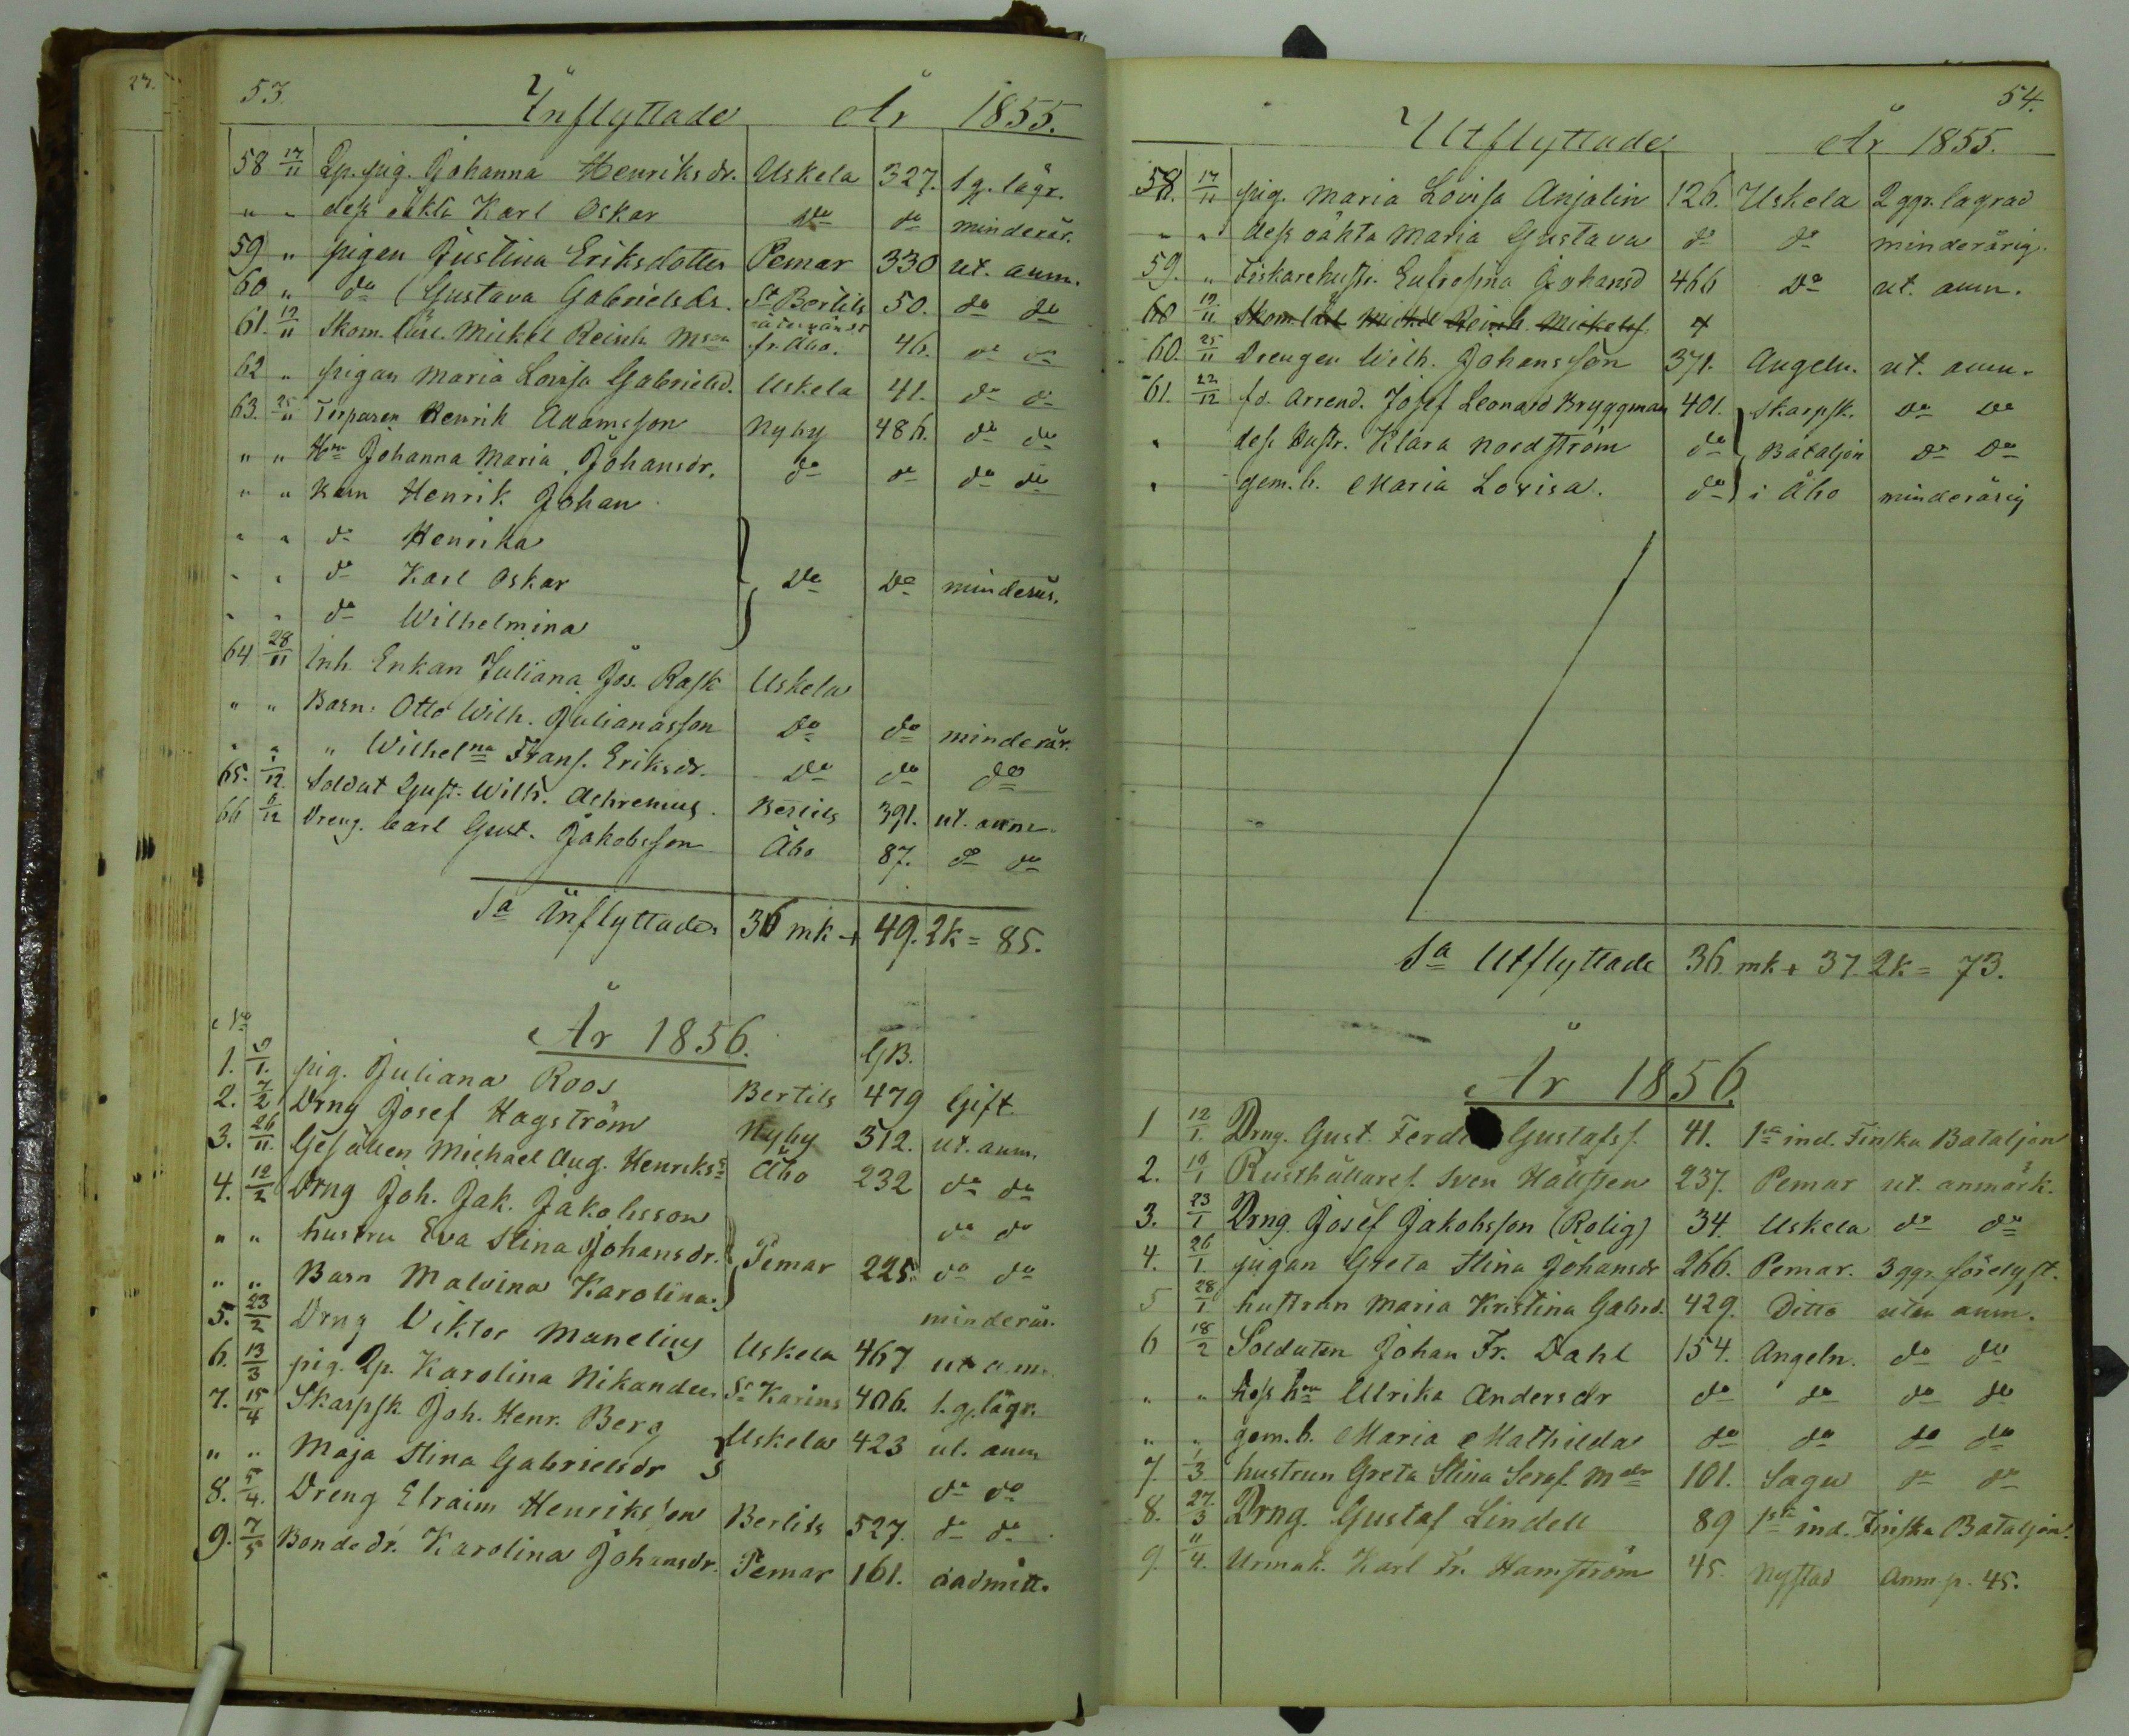 27.
53.
Inflyttade År 1855.
58 17/11 Lp. pig. Johanna Henriksdr. Uskela 327. 1 g. lägr.
" " dess oäkta Karl Oskar do do minderår.
59 " pigan Justina Eriksdotter Pemar 330 ut. anm.
60 " do Gustava Gabrielsdr. St Bertils 50. do do
återvänd
61. 19/11 Skom. lärl. Mickel Reinh. Mson fr. Åbo. 46. do do
62 " pigan Maria Lovisa Gabrielsd. Uskela 41. do do
63. 25/11 Torparen Henrik Adamsson Nyby 486. do do
" " Hru Johanna Maria Johansdr. do do do do
" " Barn Henrik Johan
" " do Henrika
" " do Karl Oskar do do minderår.
" " do Wilhelmina
64 28/11 Inh. Enkan Juliana Jos. Rask Uskela
" " Barn: Otto Wilh. Julianasson do do minderår.
" " " Wilhelna Frans. Eriksdr. do do do
65. 1/12. Soldat Gust. Wilh. Achrenius. Bertils 391. ut. anm.
66 6/12 Dreng. Carl Gust. Jakobsson Åbo 87. do do
Sa Inflyttade 36 mk + 49. 2k = 85.
No
År 1856. GB.
1. 5/1. pig. Juliana Roos Bertils 479 Gift
2. 7/2 Drng Josef Hagström Nyby 312. ut. anm.
3. 26/11. Gesällen Michael Aug. Henrikss. Åbo 232 do do
4. 12/2 Drng Joh. Jak. Jakobsson do do
" " hustru Eva Stina Johansdr. Pemar 225. do do
" " Barn Malvina Karolina. minderår.
5. 23/2 Drng Viktor Manelius Uskela 467 ut a.m.
6. 13/3 pig. Lp. Karolina Nikander St Karins 406. 1. g. lägr.
7. 15/4 Skarpsk. Joh. Henr. Berg Uskela 423 ut. anm
" " Maja Stina Gabrielsdr do do
8. 5/4. Dreng Efraim Henriksson Bertils 527. do do
9. 7/5 Bondedr. Karolina Johansdr. Pemar 161. oadmitt.
54.
Utflyttade År 1855.
58. 17/11 pig. Maria Lovisa Anjalin 126. Uskela 2 ggr. lägrad
" " dess oäkta Maria Gustava do do minderårig.
59. " Fiskarehustr. Eufrosina Johansd 466 do ut. anm.
60 19/11 Skom. lärl Mickel Reinh. Mickelss. +
60. 25/11 Drengen Wilh. Johansson 371. Angeln. ut. anm.
61. 22/12 fd. Arrend. Josef Leonard Bryggman 401. Skarpsk. do do
" dess Hustr. Klara Nordström do Bataljon do do
" gem. b. Maria Lovisa. do i Åbo minderårig
Sa Utflyttade 36. mk + 37. 2k = 73.
År 1856.
1 12/1. Drng. Gust. Ferd. Gustafss. 41. 1sta ind. Finska Bataljon
2. 19/1 Rusthållares. Sven Hällsten 237. Pemar ut. anmärk.
3. 23/1 Drng. Josef Jakobsson (Rolig) 34. Uskela do do
4. 26/1. pigan Greta Stina Johansdr 266. Pemar. 3 ggr. förelyst.
5 28/1 hustrun Maria Kristina Gabrd. 429. Ditto utan anm.
6 18/2 Soldaten Johan Fr. Dahl 154. Angeln. do do
" " dess hru Ulrika Andersdr do do do do
" " gem. b. Maria Mathilda do do do do
7. 1/3 hustrun Greta Stina Seraf. Mdr 101. Sagu do do
8. 27./3 Drng. Gustaf Lindell 89 1sta ind. Finska Bataljon.
9. 11/4. Urmak. Karl Fr. Hamström 45. Nystad Anm. p. 45.